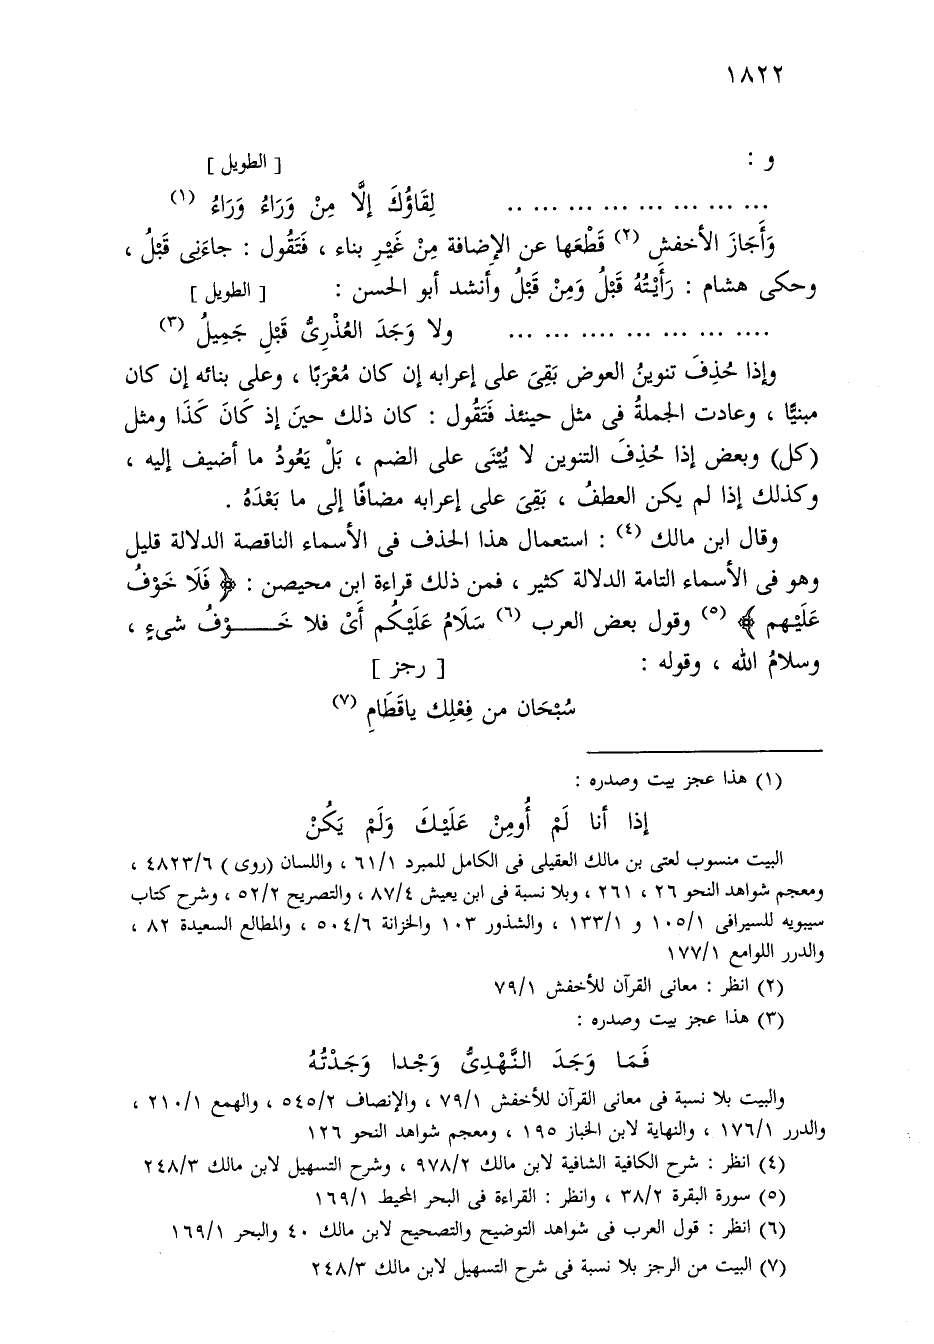 ١٨٢٢
و : [ الطويل ]
... ... ... ... ... ... ... .. لِقَاؤُكَ إلَّا مِنْ وَرَاءُ وَرَاءُ (١)
وَأَجَازَ الأخفش (٢) قَطْعَها عن الإضافة مِنْ غَيْرِ بناء ، فَتَقُول : جاءَنِى قَبْلُ ،
وحكى هشام : رَأَيْتُهُ قَبْلُ وَمِنْ قَبْلُ وأنشد أبو الحسن : [ الطويل ]
.... ... ... ... .... ... ... ... ولا وَجَدَ العُذْرِىُّ قَبْلِ جَمِيلُ (٣)
وإذا حُذِفَ تنوينُ العوض بَقِىَ على إعرابه إن كان مُعْرَبًا ، وعلى بنائه إن كان
مبنيًّا ، وعادت الجملةُ فى مثل حينئذ فَتَقُول : كان ذلك حينَ إذ كَانَ كَذَا ومثل
(كل) وبعض إذا حُذِفَ التنوين لا يُبْنَى على الضم ، بَلْ يَعُودُ ما أضيف إليه ،
وكذلك إذا لم يكن العطفُ ، بَقِىَ على إعرابه مضافًا إلى ما بَعْدَهُ .
وقال ابن مالك (٤) : استعمال هذا الحذف فى الأسماء الناقصة الدلالة قليل
وهو فى الأسماء التامة الدلالة كثير ، فمن ذلك قراءة ابن محيصن : ﴿ فَلَا خَوْفُ
عَلَيْهم ﴾ (٥) وقول بعض العرب (٦) سَلَامُ عَلَيْكُم أَىْ فلا خَـــوْفُ شىءٍ ،
وسلامُ الله ، وقوله : [ رجز ]
سُبْحَان من فِعْلِك ياقَطَامِ (٧)
(١) هذا عجز بيت وصدره :
إذا أنا لَمْ أُومِنْ عَلَيْكَ وَلَمْ يَكُنْ
البيت منسوب لعتى بن مالك العقيلى فى الكامل للمبرد ٦١/١ ، واللسان (روى ) ٤٨٢٣/٦ ،
ومعجم شواهد النحو ٢٦ ، ٢٦١ ، وبلا نسبة فى ابن يعيش ٨٧/٤ ، والتصريح ٥٢/٢ ، وشرح كتاب
سيبويه للسيرافى ١٠٥/١ و ١٣٣/١ ، والشذور ١٠٣ والخزانة ٥٠٤/٦ ، والمطالع السعيدة ٨٢ ،
والدرر اللوامع ١٧٧/١
(٢) انظر : معانى القرآن للأخفش ٧٩/١
(٣) هذا عجز بيت وصدره :
فَمَا وَجَدَ النَّهْدِىُّ وَجْدا وَجَدْتُهُ
والبيت بلا نسبة فى معانى القرآن للأخفش ٧٩/١ ، والإنصاف ٥٤٥/٢ ، والهمع ٢١٠/١ ،
والدرر ١٧٦/١ ، والنهاية لابن الخباز ١٩٥ ، ومعجم شواهد النحو ١٢٦
(٤) انظر : شرح الكافية الشافية لابن مالك ٩٧٨/٢ ، وشرح التسهيل لابن مالك ٢٤٨/٣
(٥) سورة البقرة ٣٨/٢ ، وانظر : القراءة فى البحر المحيط ١٦٩/١
(٦) انظر : قول العرب فى شواهد التوضيح والتصحيح لابن مالك ٤٠ والبحر ١٦٩/١
(٧) البيت من الرجز بلا نسبة فى شرح التسهيل لابن مالك ٢٤٨/٣